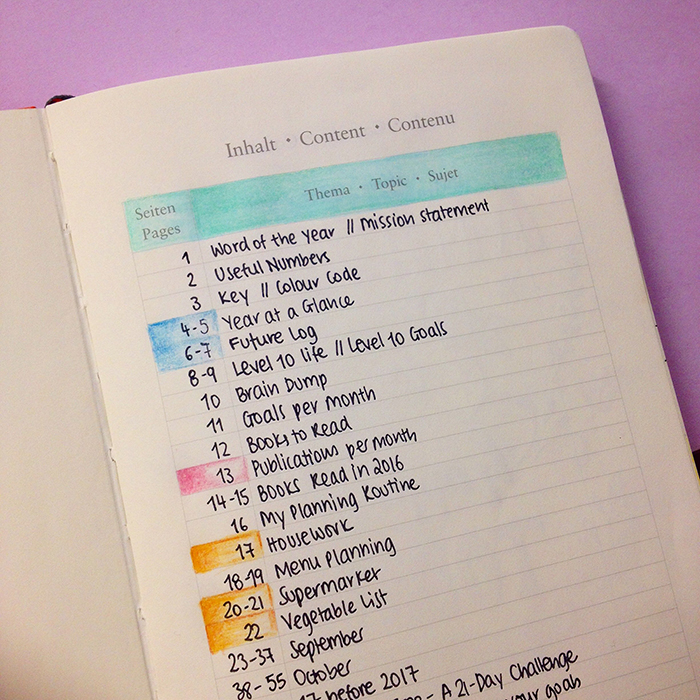 Inhalt • Content • Contenu
Seiten Pages Thema • Topic • Sujet
1 Word of the Year // Mission Statement
2 Useful Numbers
3 Key // Colour Code
4-5 Year at a Glance
6-7 Future Log
8-9 Level 10 life // Level 10 Goals
10 Brain Dump
11 Goals per month
12 Books to Read
13 Publications per month
14-15 Books Read in 2016
16 My Planning Routine
17 Housework
18-19 Menu Planning
20-21 Supermarket
22 Vegetable List
23-37 September
38-55 October
before 2017
- A 21-Day Challenge
your goals